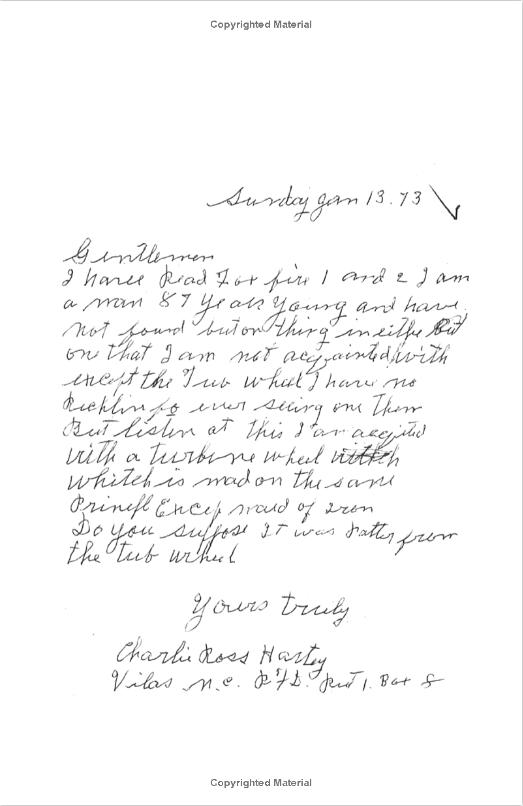 Copyrighted Material
Sunday Jan 13.73
Gentlemen
I have Read Fox fire 1 and 2 I am
a man 87 Years Young and have
not found but on thing in either
one that I am not acqainted with
except the Tub wheel I have no
ever seeing one
But listen at this I am
with a turbune wheel
whitch is mad on the same
Princpl Excep maid of Iron
Do you suppose It was Patter from
the tub wheel
Yours truly
Charlie Ross Hartley
Vilas N.C. RFD. Rut 1. Box 8
Copyrighted Material